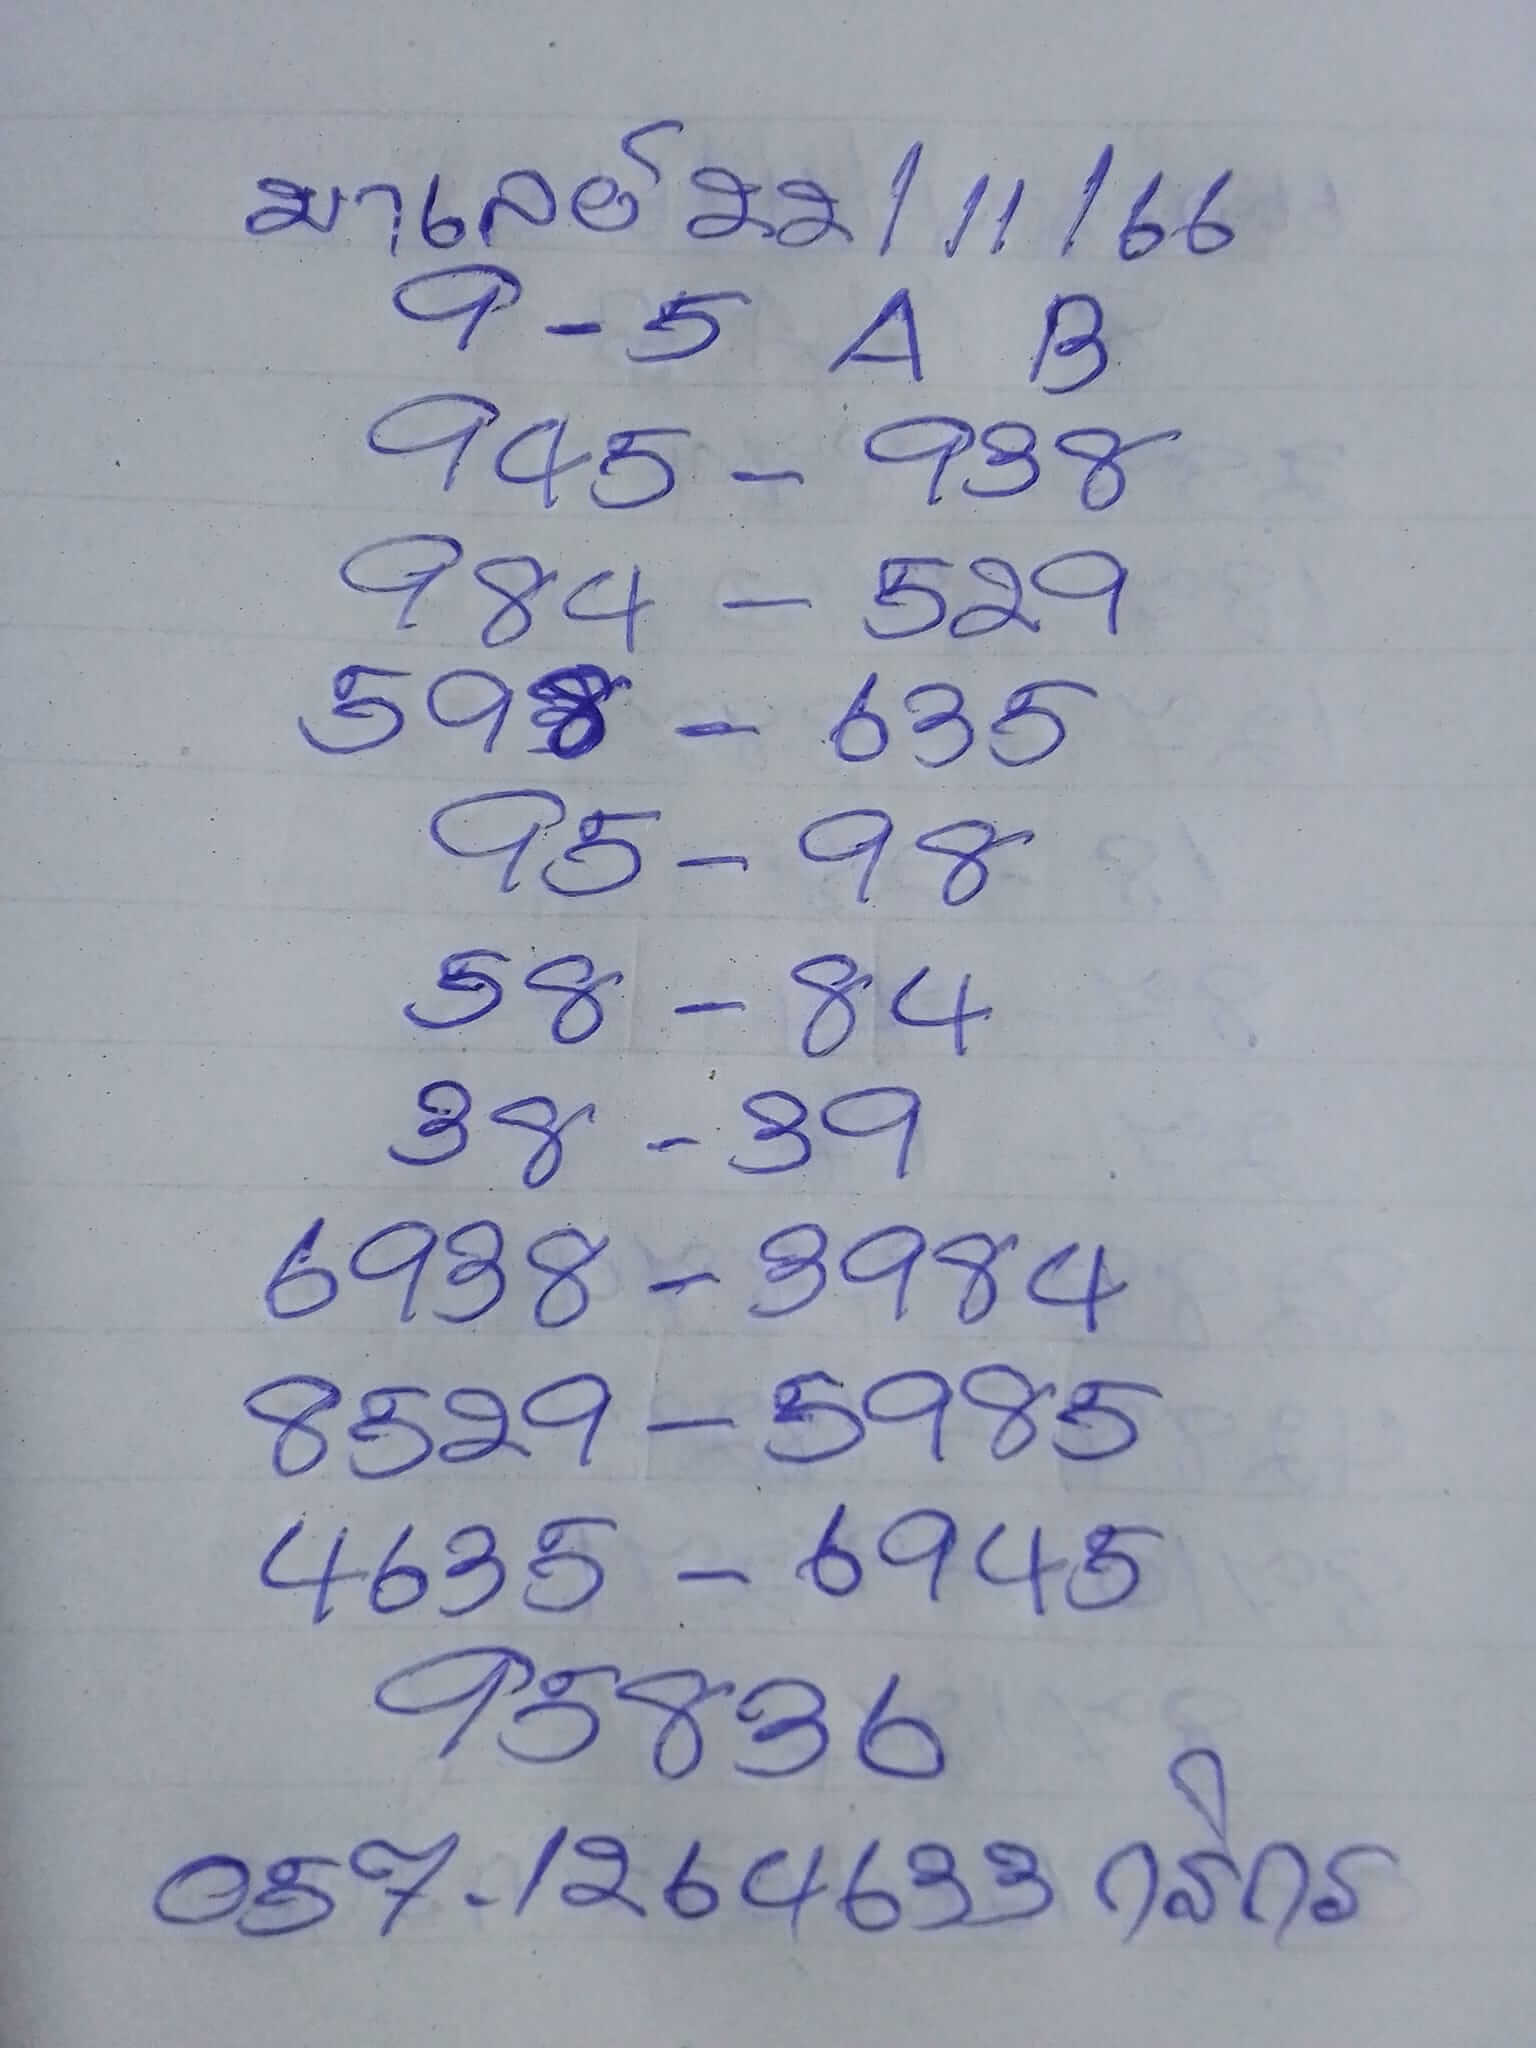 มาเลย์ 22/11/66
9-5 A B
945 - 938
984 - 529
598 - 635
95 - 98
58 - 84
38 - 39
6938 - 3984
8529 - 5985
4635 - 6945
95836
057-1264633 กสิกร